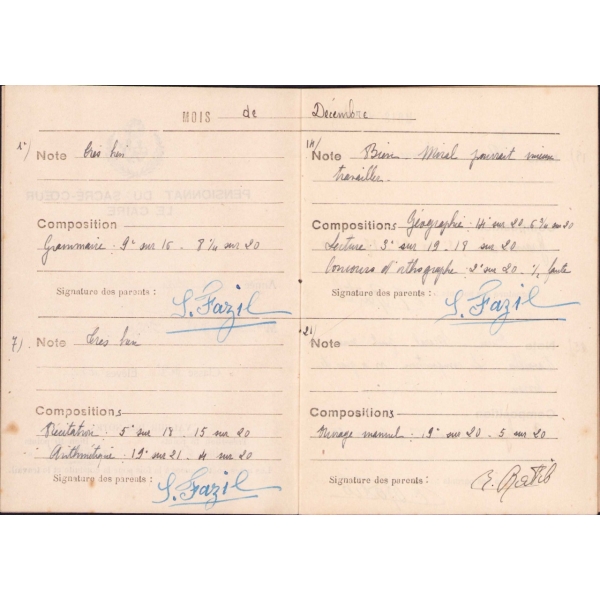 MOIS de Décembre
1°/ Note très bien
Composition
Grammaire : 9e sur 16. 8 1/4 sur 20
Signature des parents :
S. Fazil
7/. Note très bien
Compositions
Récitation : 5e sur 18 15 sur 20
Arithmétique : 19e sur 21. 4 sur 20
Signature des parents :
S. Fazil
14/ Note Bien Moral pourrait mieux
travailler.
Compositions Géographie : 14e sur 20
Lecture 3e sur 19 18 sur 20
Concours d'orthographe : 2e sur 20 faute
Signature des parents :
S. Fazil
21/ Note
Compositions
Ouvrage manuel : 19e sur 20. 5 sur 20
Signature des parents :
PENSIONNAT DU SACRÉ-CŒUR
LE CAIRE